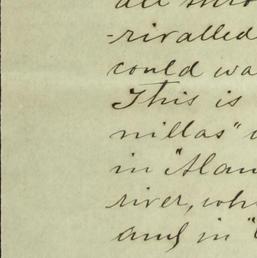 all thro
-rivalled
could wa
This is
nillas" 
in "Alam
river, whi
and in "